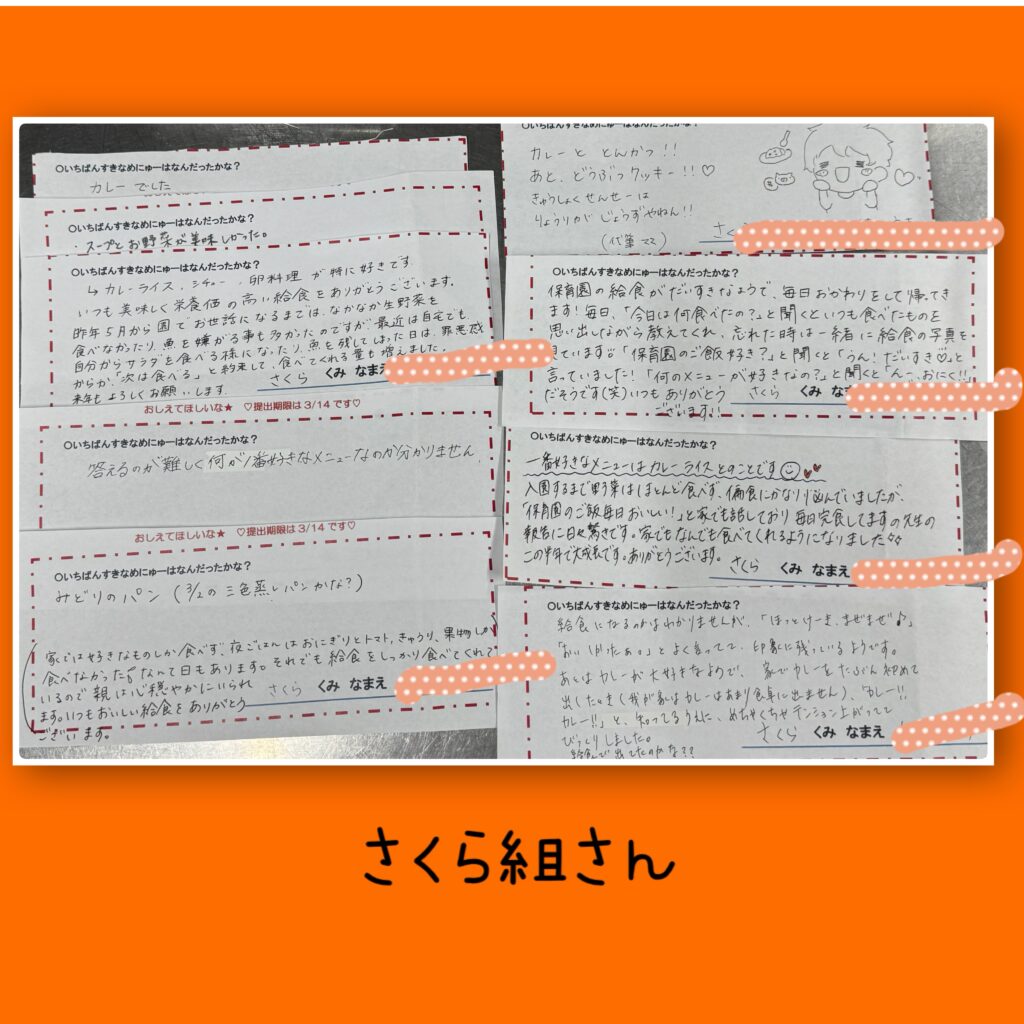 ○いちばんすきなめにゅーはなんだったかな?
カレーでした
○いちばんすきなめにゅーはなんだったかな?
・スープとお野菜が美味しかった。
○いちばんすきなめにゅーはなんだったかな?
↳カレーライス・シチュー・卵料理 が特に好きです。
いつも美味しく栄養価の高い給食をありがとうございます。
昨年5月から園でお世話になるまでは、なかなか生野菜を
食べなかったり、魚を嫌がる事も多かったのですが、最近は自宅でも
自分からサラダを食べる様になったり、魚を残してしまった日は、罪悪感
からか、「次は食べる」と約束して、食べてくれる量も増えました。
来年もよろしくお願いします。
さくら くみ なまえ
おしえてほしいな★ ♡提出期限は3/14です♡
○いちばんすきなめにゅーはなんだったかな?
答えるのが難しく何が1番好きなメニューなのか分かりません。
おしえてほしいな★ ♡提出期限は3/14です♡
○いちばんすきなめにゅーはなんだったかな?
みどりのパン (3/2の三色蒸しパンかな?)
家では好きなものしか食べず、夜ごはんはおにぎりとトマト、きゅうり、果物しか
食べなかった なんて日もあります。それでも給食をしっかり食べてくれて
いるので親は心穏やかにいられ
ます。いつもおいしい給食をありがとう
ございます。
さくら くみ なまえ
○いちばんすきなめにゅーはなんだったかな?
カレーと とんかつ!!
あと、どうぶつクッキー!!♡
きゅうしょくせんせーは
りょうりが じょうずやねん!!
(代筆ママ)
さく
○いちばんすきなめにゅーはなんだったかな?
保育園の給食がだいすきなようで、毎日おかわりをして帰ってき
ます!毎日、「今日は何食べたの?」と聞くといつも食べたものを
思い出しながら教えてくれ、忘れた時は一緒に給食の写真を
見ています 「保育園のご飯好き?」と聞くと「うん!だいすき♡」と
言っていました!「何のメニューが好きなの?」と聞くと「んー、おにく!!」
だそうです(笑)いつもありがとう
ございます!!
さくら くみ なま
○いちばんすきなめにゅーはなんだったかな?
一番好きなメニューはカレーライスとのことです
入園するまで野菜はほとんど食べず、偏食にかなり悩んでいましたが、
「保育園のご飯毎日おいしい!」と家でも話しており毎日完食してますの先生の
報告に日々驚きです。家でもなんでも食べてくれるようになりました
この半年で大成長です。ありがとうございます。
さくら くみ なまえ
○いちばんすきなめにゅーはなんだったかな?
給食になるのかはわかりませんが、「ほっとけーき、まぜまぜ♪」
「おいしかったぁ。」とよく言ってて、印象に残っているようです。
あとはカレーが大好きなようで、家でカレーをたぶん初めて
出したとき(我が家はカレーはあまり食卓に出ません)、「カレー!!
カレー!!」と、知ってるうえに、めちゃくちゃテンション上がってて
びっくりしました。
給食で出てたのかな??
さくら くみ なまえ
さくら組さん